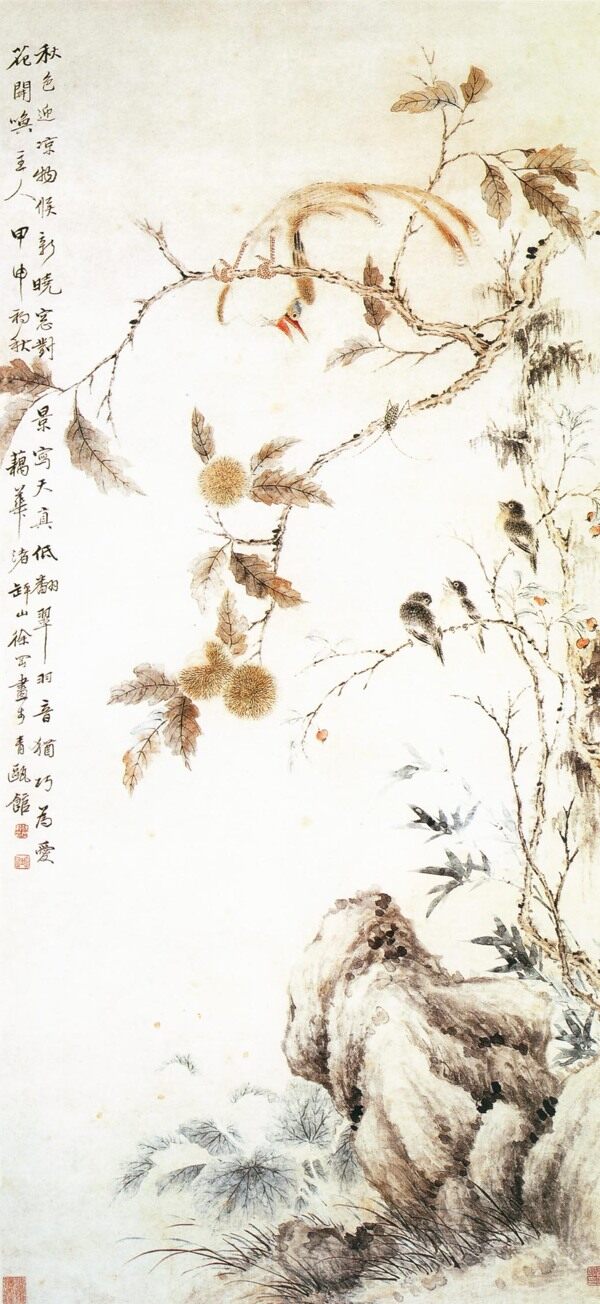 秋色迎凉物候新曉窓對景寫天真低翻翠羽音猶巧為愛
花開喚主人甲申初秋藕華渚山徐畫于青甌館